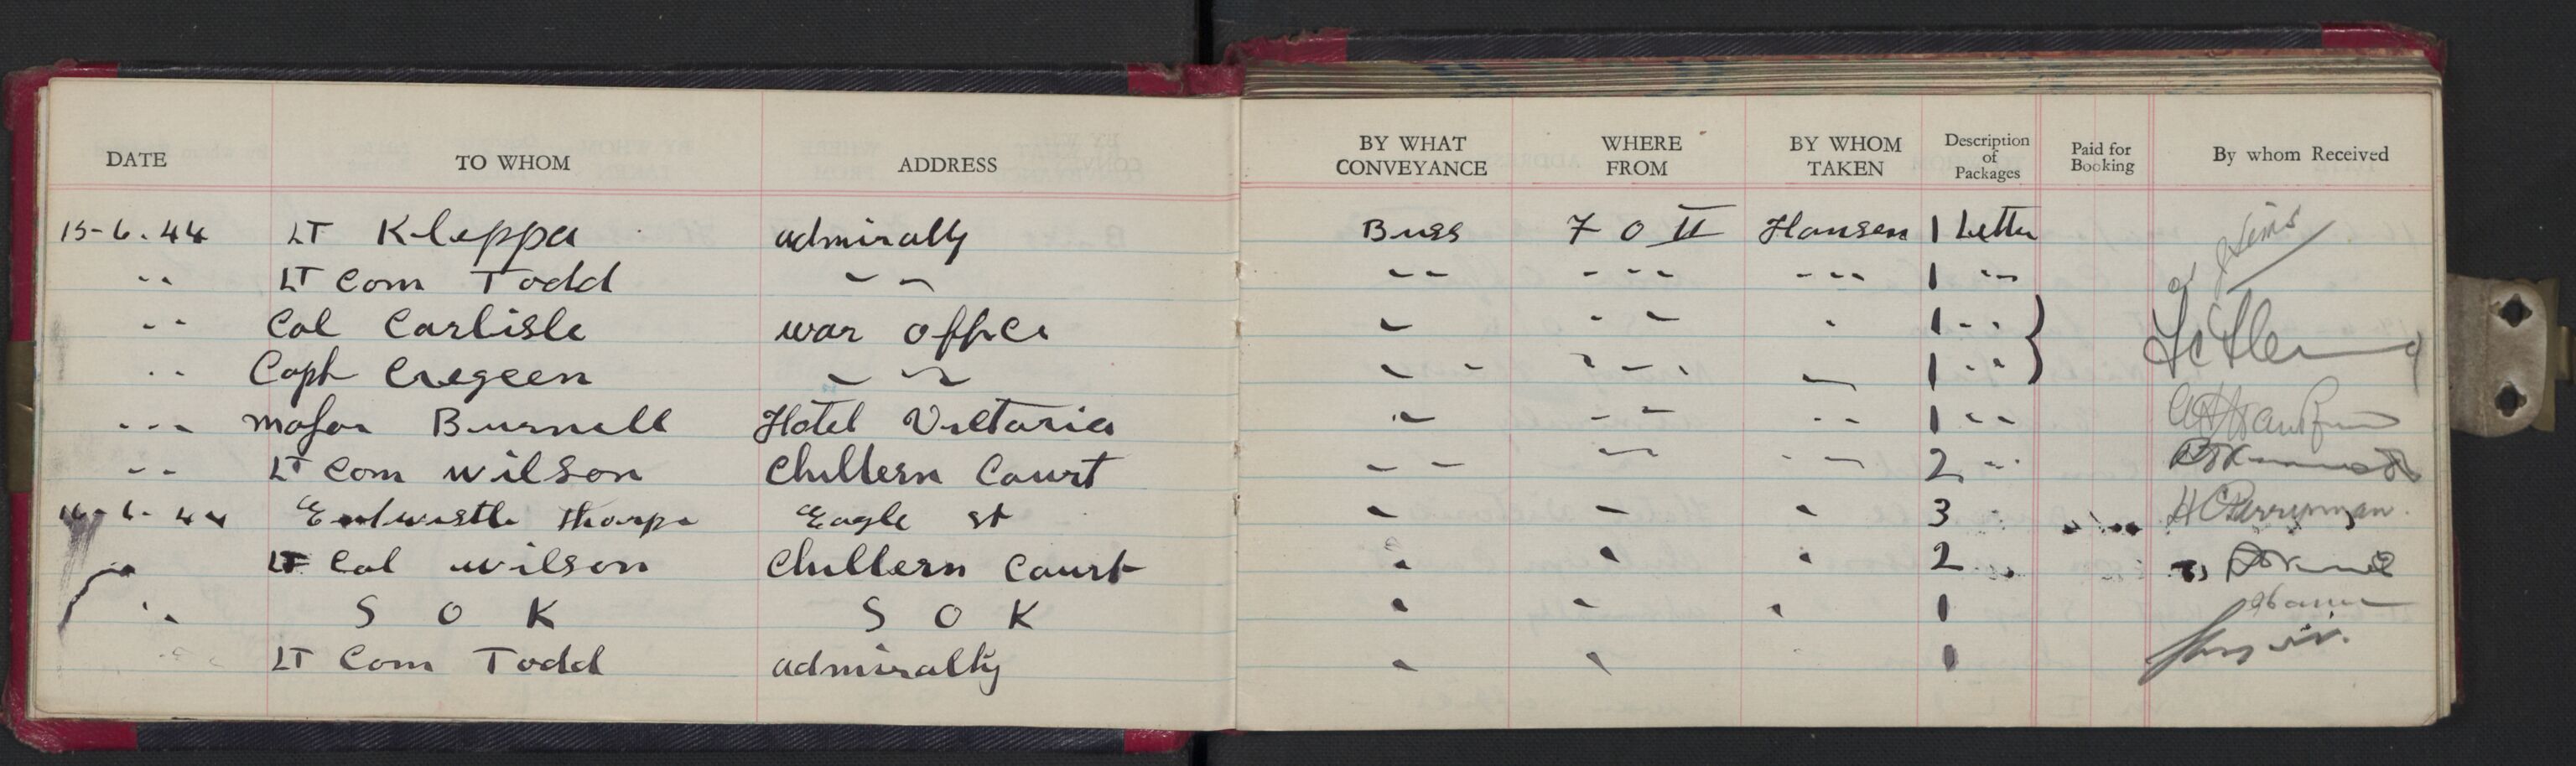 DATE TO WHOM ADDRESS BY WHAT CONVEYANCE WHERE FROM BY WHOM TAKEN Description of Packages Paid for Booking By whom Received
15-6.44 LT Kleppa admiralty Buss F O II Hansen 1 Letter
" LT Com Todd " " " " 1 "
" Col Carlisle war office " " " 1 "
" Capt Cregeen " " " " 1 "
" major Burnell Hotel Victoria " " " 1 "
" LT Com Wilson Chiltern Court " " " 2 "
16-6-44 Entwistle Thorpe Eagle st " " " 3 " H C Perryman
" LT Col wilson Chiltern Court " " " 2 "
" S O K S O K " " " 1
" LT Com Todd admiralty " " 1